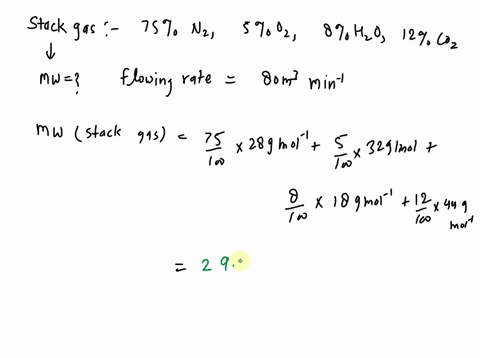 Stack gas :- 75% N2, 5% O2, 8% H2O, 12% CO2
↓
MW=? flowing rate = 80m³ min⁻¹
MW (stack gas) = 75/100 × 28gmol⁻¹ + 5/100 × 32g/mol +
8/100 × 18gmol⁻¹ + 12/100 × 44g mol⁻¹
= 29.